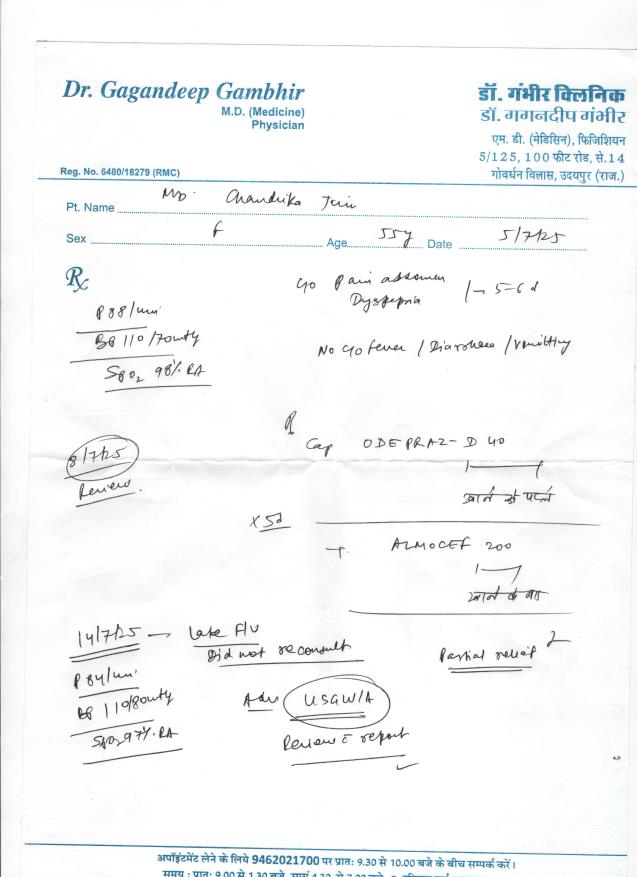 Dr. Gagandeep Gambhir
M.D. (Medicine)
Physician
Reg. No. 6480/18279 (RMC)
डॉ. गंभीर क्लिनिक
डॉ. गगनदीप गंभीर
एम. डी. (मेडिसिन), फिजिशियन
5/125, 100 फीट रोड, से.14
गोवर्धन विलास, उदयपुर (राज.)
Pt. Name Chandrika Jain
Sex F Age 55y Date 5/7/25
Rx
P 88/min
BP 110/70
SPO2 98% RA
c/o Pain abdomen
Dyspepsia
5-6 d
No c/o fever / Diarrhoea / Vomitting
8/7/25
Review.
Cap ODEPRAZ-D 40
खाने से पहले
x 5d
T. ALMOCEF 200
खाने के बाद
14/7/25 → Late F/U
Did not reconsult
Partial relief
P 84/min
BP 110/80
SPO2 97% RA
Adv USG W/A
Review c report
अपॉइंटमेंट लेने के लिये 9462021700 पर प्रातः 9.30 से 10.00 बजे के बीच सम्पर्क करें।